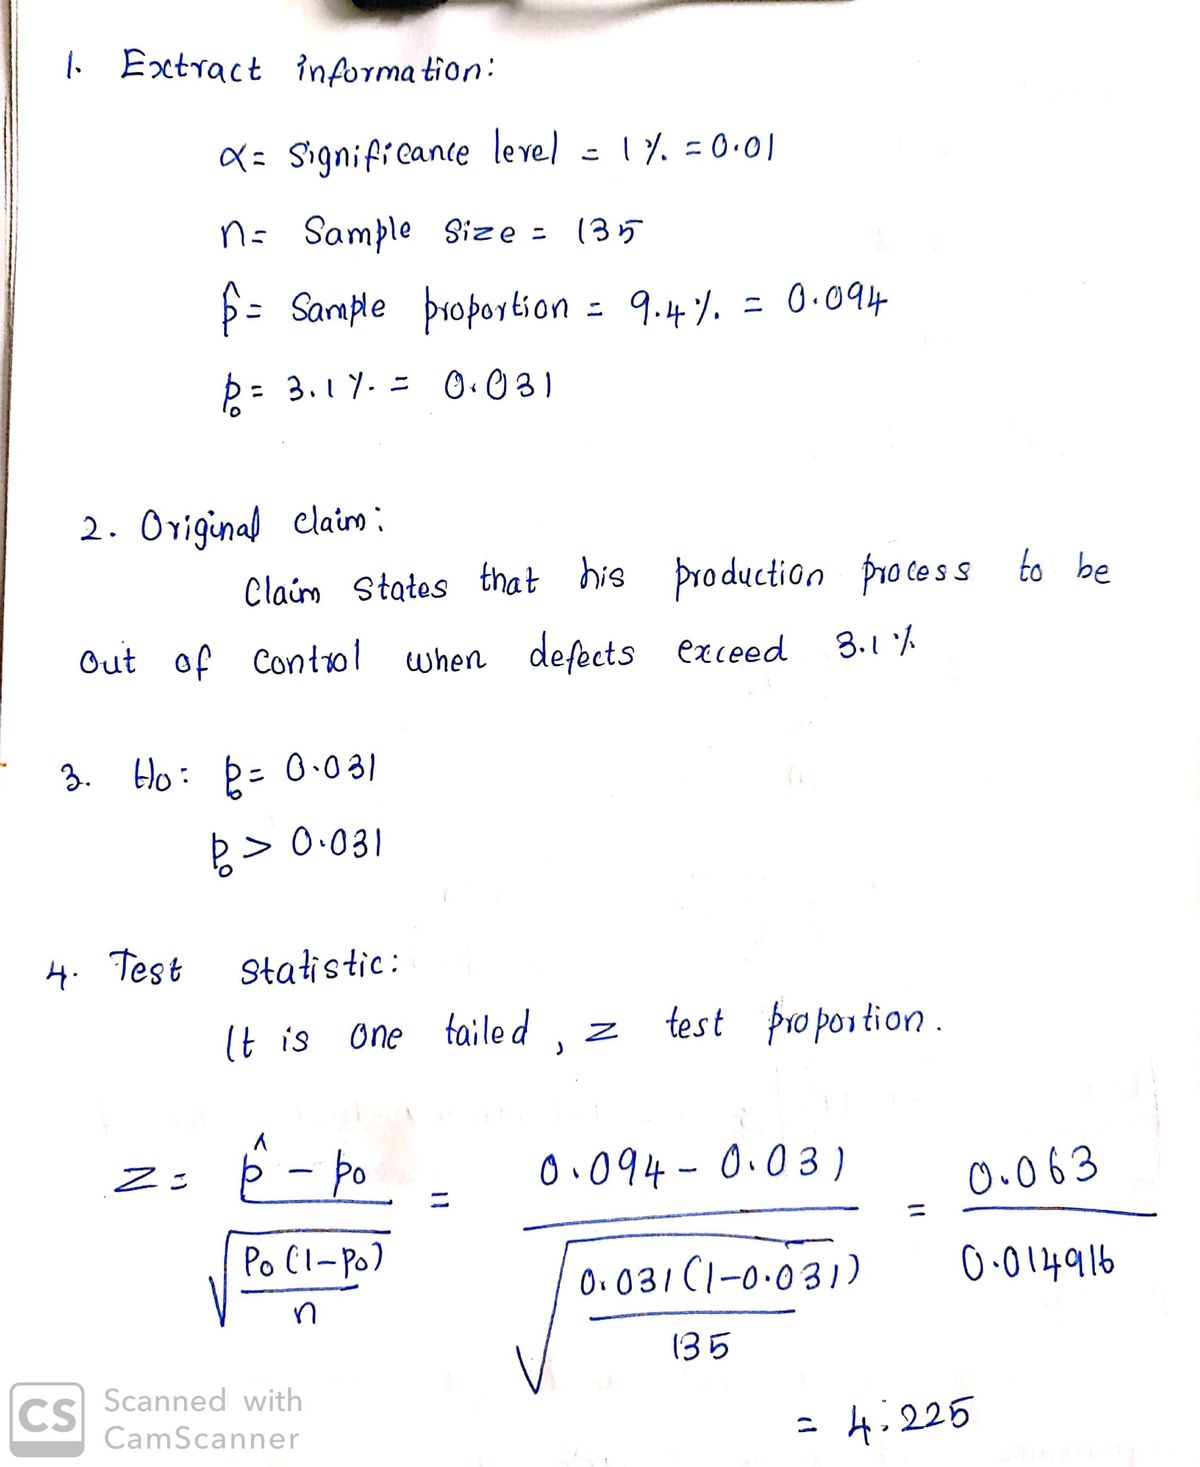 1. Extract information:
α = Significance level = 1 % = 0.01
n = Sample Size = 135
p̂ = Sample proportion = 9.4 % = 0.094
p₀ = 3.1 % = 0.031
2. Original claim:
Claim states that his production process to be
out of control when defects exceed 3.1 %
3. H₀: p₀ = 0.031
p₀ > 0.031
4. Test statistic:
It is one tailed, z test proportion.
z = (p̂ - p₀) / √(p₀(1-p₀)/n) = (0.094 - 0.031) / √(0.031(1-0.031)/135) = 0.063 / 0.014916
= 4.225
CS Scanned with
CamScanner